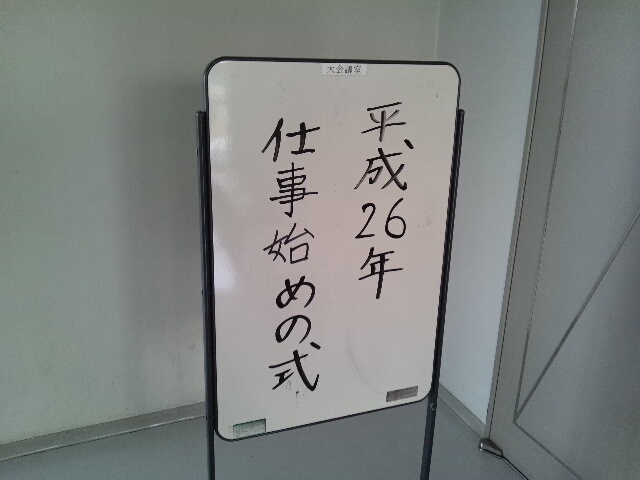 大会議室
平成26年
仕事始めの式